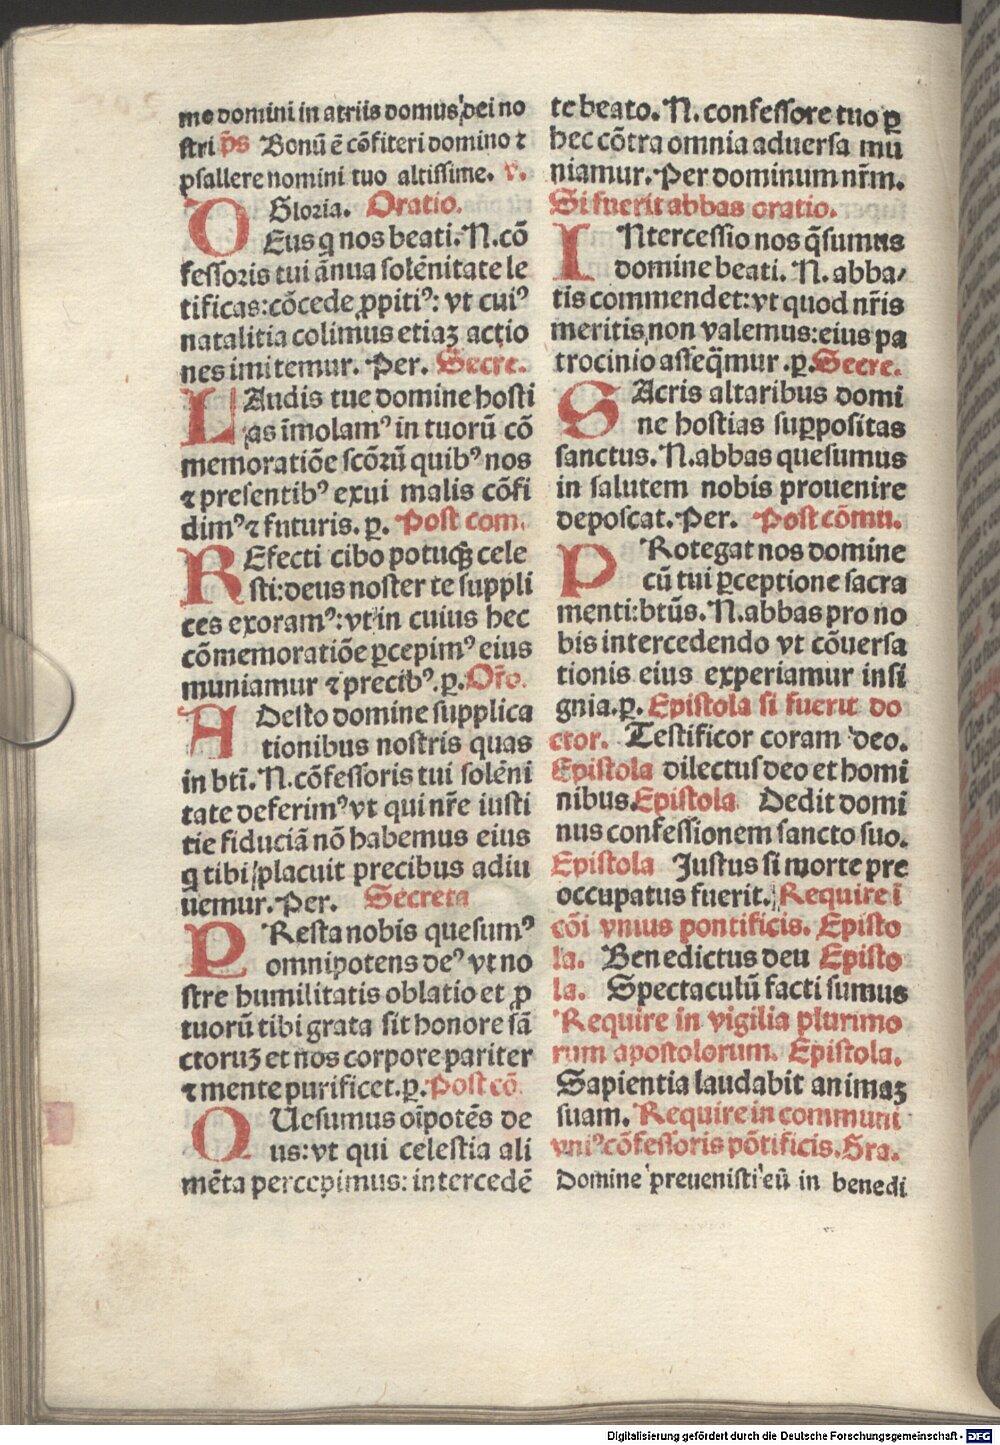 mo domini in atriis domus dei no
stri p̄s Bonū ē cōfiteri domino ⁊
psallere nomini tuo altissime. v.
Gloria. Oratio.
DEus q nos beati. N. cō
fessoris tui ānua solēnitate le
tificas: cōcede ꝓpitiꝰ: vt cuiꝰ
natalitia colimus etiaꝫ actio
nes imitemur. Per. Secre.
LAudis tue domine hosti
as īmolamꝰ in tuorū cō
memoratiōe scōꝝ quibꝰ nos
⁊ presentibꝰ exui malis cōfi
dimꝰ ⁊ futuris. ꝑ. Post com.
REfecti cibo potuqꝫ cele
sti: deus noster te suppli
ces exoramꝰ: vt in cuius hec
cōmemoratiōe ꝑcepimꝰ eius
muniamur ⁊ precibꝰ. ꝑ. Oro.
ADesto domine supplica
tionibus nostris quas
in bti. N. cōfessoris tui solēni
tate deferimꝰ vt qui nr̄e iusti
tie fiduciā nō habemus eius
q tibi placuit precibus adiu
uemur. Per. Secreta
PResta nobis quesumꝰ
omnipotens deꝰ vt no
stre humilitatis oblatio et ꝓ
tuorū tibi grata sit honore sā
ctoruꝫ et nos corpore pariter
⁊ mente purificet. ꝑ. Post cō.
QUesumus oīpotēs de
us: vt qui celestia ali
mēta percepimus: intercedē
te beato. N. confessore tuo ꝑ
hec cōtra omnia aduersa mu
niamur. Per dominum nr̄m.
Si fuerit abbas oratio.
INtercessio nos q̄sumus
domine beati. N. abba/
tis commendet: vt quod nr̄is
meritis non valemus: eius pa
trocinio asseq̄mur. ꝑ. Secre.
SAcris altaribus domi
ne hostias suppositas
sanctus. N. abbas quesumus
in salutem nobis prouenire
deposcat. Per. Post cōmu.
PRotegat nos domine
cū tui ꝑceptione sacra
menti: btūs. N. abbas pro no
bis intercedendo vt cōuersa
tionis eius experiamur insi
gnia. ꝑ. Epistola si fuerit do
ctor. Testificor coram deo.
Epistola dilectus deo et homi
nibus. Epistola Dedit domi
nus confessionem sancto suo.
Epistola Justus si morte pre
occupatus fuerit. Require ī
cōi vnius pontificis. Episto
la. Benedictus deu Episto
la. Spectaculū facti sumus
Require in vigilia plurimo
rum apostolorum. Epistola.
Sapientia laudabit animaꝫ
suam. Require in communi
vniꝰ cōfessoris pōtificis. Gra.
Domine preuenisti eū in benedi
Digitalisierung gefördert durch die Deutsche Forschungsgemeinschaft - DFG